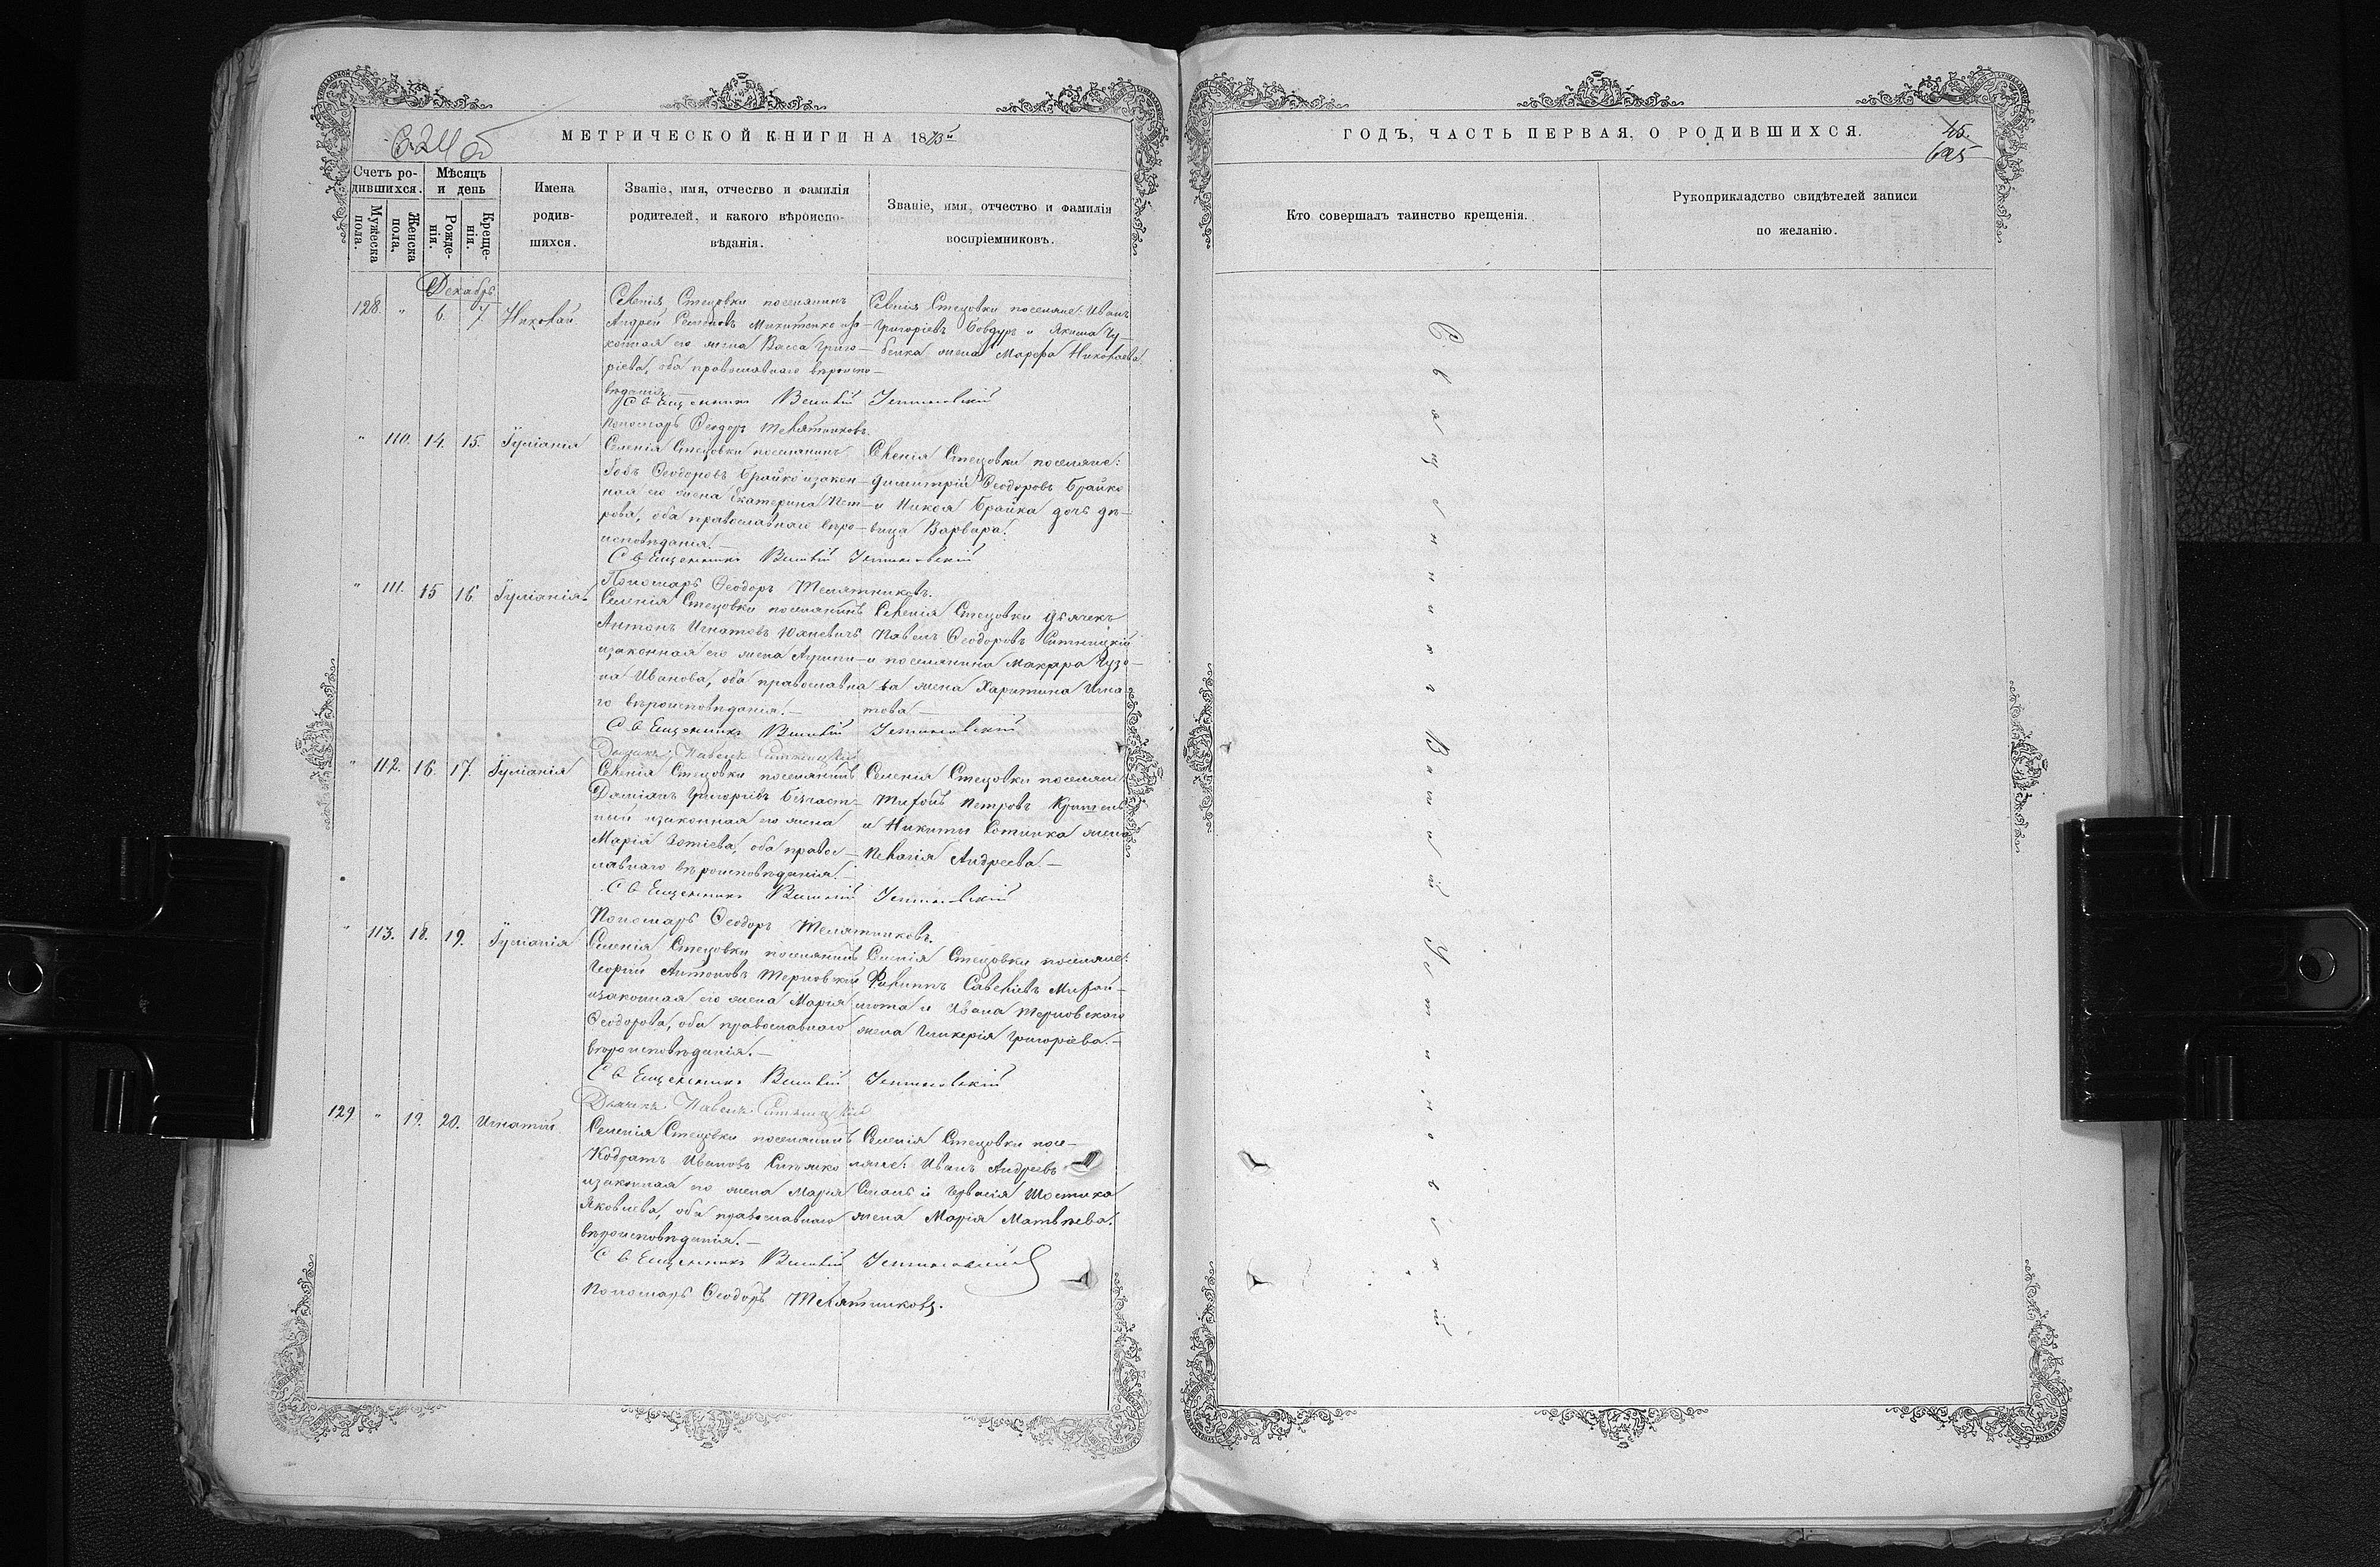 МЕТРИЧЕСКОЙ КНИГИ НА 1873й
ГОДЪ, ЧАСТЬ ПЕРВАЯ, О РОДИВШИХСЯ.
625
Счетъ ро-
дившихся.
Мѣсяцъ
и день
Мужеска
пола.
Женска
пола.
Рожде-
нія.
Креще-
нія.
Имена
родив-
шихся.
Званіе, имя, отчество и фамилія
родителей, и какого вѣроиспо-
вѣданія.
Званіе, имя, отчество и фамилія
воспріемниковъ.
Кто совершалъ таинство крещенія.
Рукоприкладство свидѣтелей записи
по желанію.
Декабрь
128. " 6. 7. Николай
Селенія Стецовки поселянинъ
Андрей Семеновъ Микитенко иза-
конная его жена Васса Григо-
ріева, оба православнаго вѣроиспо-
вѣданія
Селенія Стецовки поселяне: Иванъ
Григоріевъ Бовдуръ и Якима Чу-
бенка жена Марфа Николаева
Священникъ Василій
Пономарь Ѳеодоръ Телятниковъ.
" 110. 14. 15. Іуліанія
Селенія Стецовки поселянинъ
Ѳеодоровъ Брайко изакон-
ная его жена Екатерина Пет-
рова, оба православнаго вѣро-
исповѣданія.
Селенія Стецовки поселяне:
Димитрій Ѳеодоровъ Брайко
и Брайка дочь дѣ-
вица Варвара.
Священникъ Василій
Пономарь Ѳеодоръ Телятниковъ.
" 111. 15 16. Іуліанія
Селенія Стецовки поселянинъ
Антонъ Игнатовъ Юхневичъ
изаконная его жена Агрипи-
на Иванова, оба православна
го вѣроисповѣданія.
Селенія Стецовки дьячекъ
Павелъ Ѳеодоровъ Ситницкій
и поселянина Макара Чузо-
ва жена Харитина Игна
това
Священникъ Василій
Дьячекъ Павелъ Ситницкій
" 112. 16. 17. Іуліанія
Селенія Стецовки поселянинъ
Даміанъ Григоріевъ Безчаст-
ный изаконная его жена
Марія Зотіева, оба право-
славнаго вѣроисповѣданія.
Селенія Стецовки поселяне
Петровъ
и Никиты Сотника жена
Пелагія Андреева.
Священникъ Василій
Пономарь Ѳеодоръ Телятниковъ.
" 113. 18. 19. Іуліанія
Селенія Стецовки поселянинъ
Георгій Антоновъ Терновскій
изаконная его жена Марія
Ѳеодорова, оба православнаго
вѣроисповѣданія.
Селенія Стецовки поселяне:
Филиппъ Савеліевъ Михай-
лота и Ивана Терновскаго
жена Гликерія Григоріева.
Священникъ Василій
Дьячекъ Павелъ Ситницкій
129 " 19. 20. Игнатій
Селенія Стецовки поселянинъ
Кодратъ Ивановъ
изаконная его жена Марія
Яковлева, оба православнаго
вѣроисповѣданія.
Селенія Стецовки посе-
ляне: Иванъ Андреевъ
и Гервасія Шостика
жена Марія Матвѣева.
Священникъ Василій
Пономарь Ѳеодоръ Телятниковъ.
Священникъ Василій